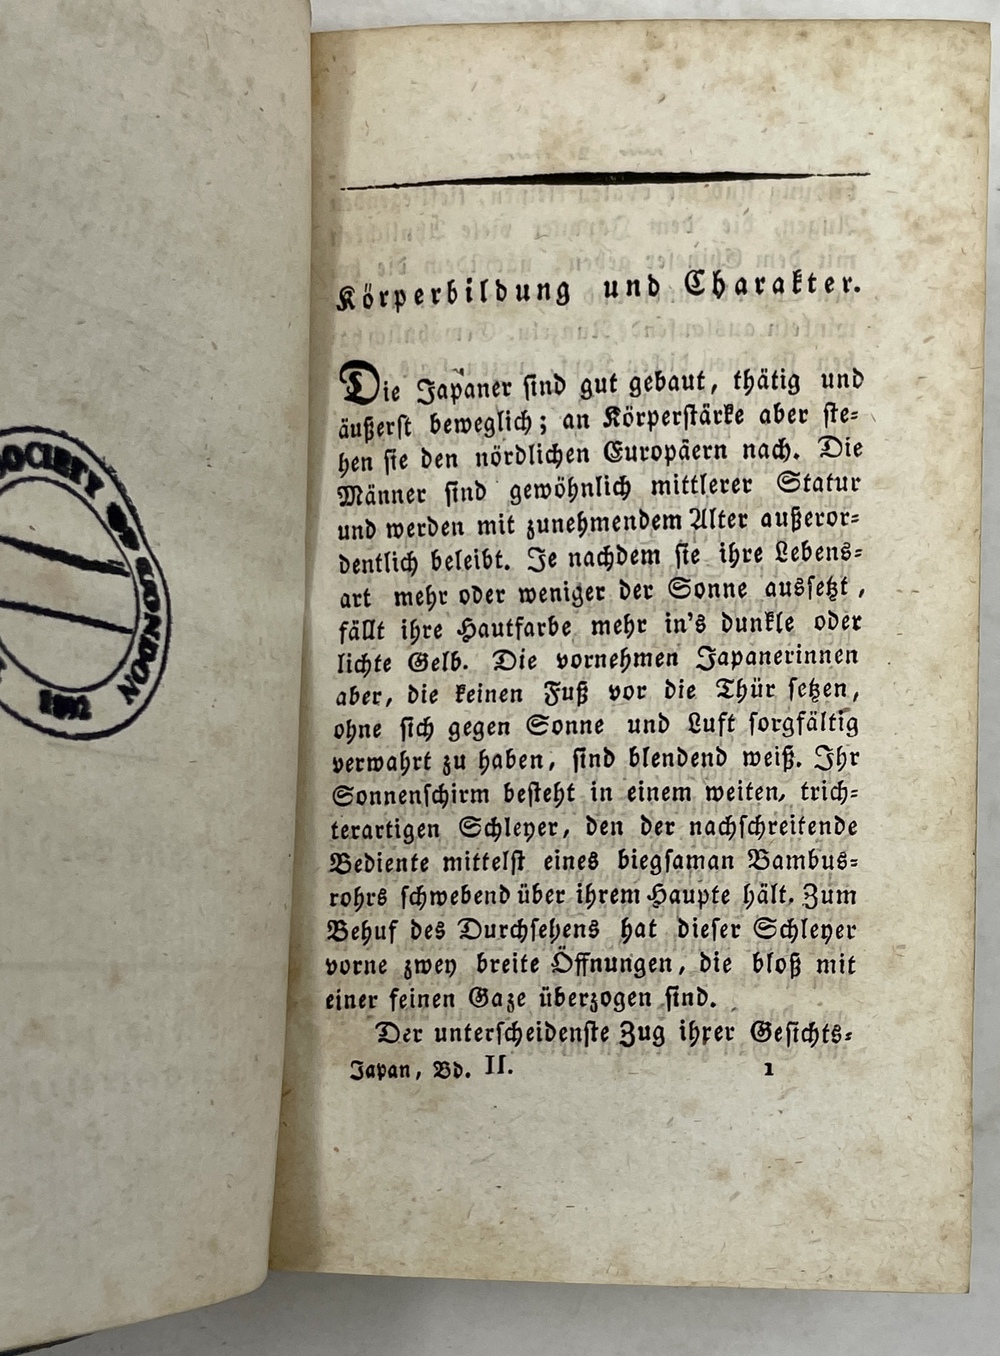 SOCIETY OF LONDON
1892
Körperbildung und Charakter.
Die Japaner sind gut gebaut, thätig und
äußerst beweglich; an Körperstärke aber ste=
hen sie den nördlichen Europäern nach. Die
Männer sind gewöhnlich mittlerer Statur
und werden mit zunehmendem Alter außeror=
dentlich beleibt. Je nachdem sie ihre Lebens=
art mehr oder weniger der Sonne aussetzt,
fällt ihre Hautfarbe mehr in's dunkle oder
lichte Gelb. Die vornehmen Japanerinnen
aber, die keinen Fuß vor die Thür setzen,
ohne sich gegen Sonne und Luft sorgfältig
verwahrt zu haben, sind blendend weiß. Ihr
Sonnenschirm besteht in einem weiten, trich=
terartigen Schleyer, den der nachschreitende
Bediente mittelst eines biegsaman Bambus=
rohrs schwebend über ihrem Haupte hält. Zum
Behuf des Durchsehens hat dieser Schleyer
vorne zwey breite Öffnungen, die bloß mit
einer feinen Gaze überzogen sind.
Der unterscheidenste Zug ihrer Gesichts=
Japan, Bd. II. 1